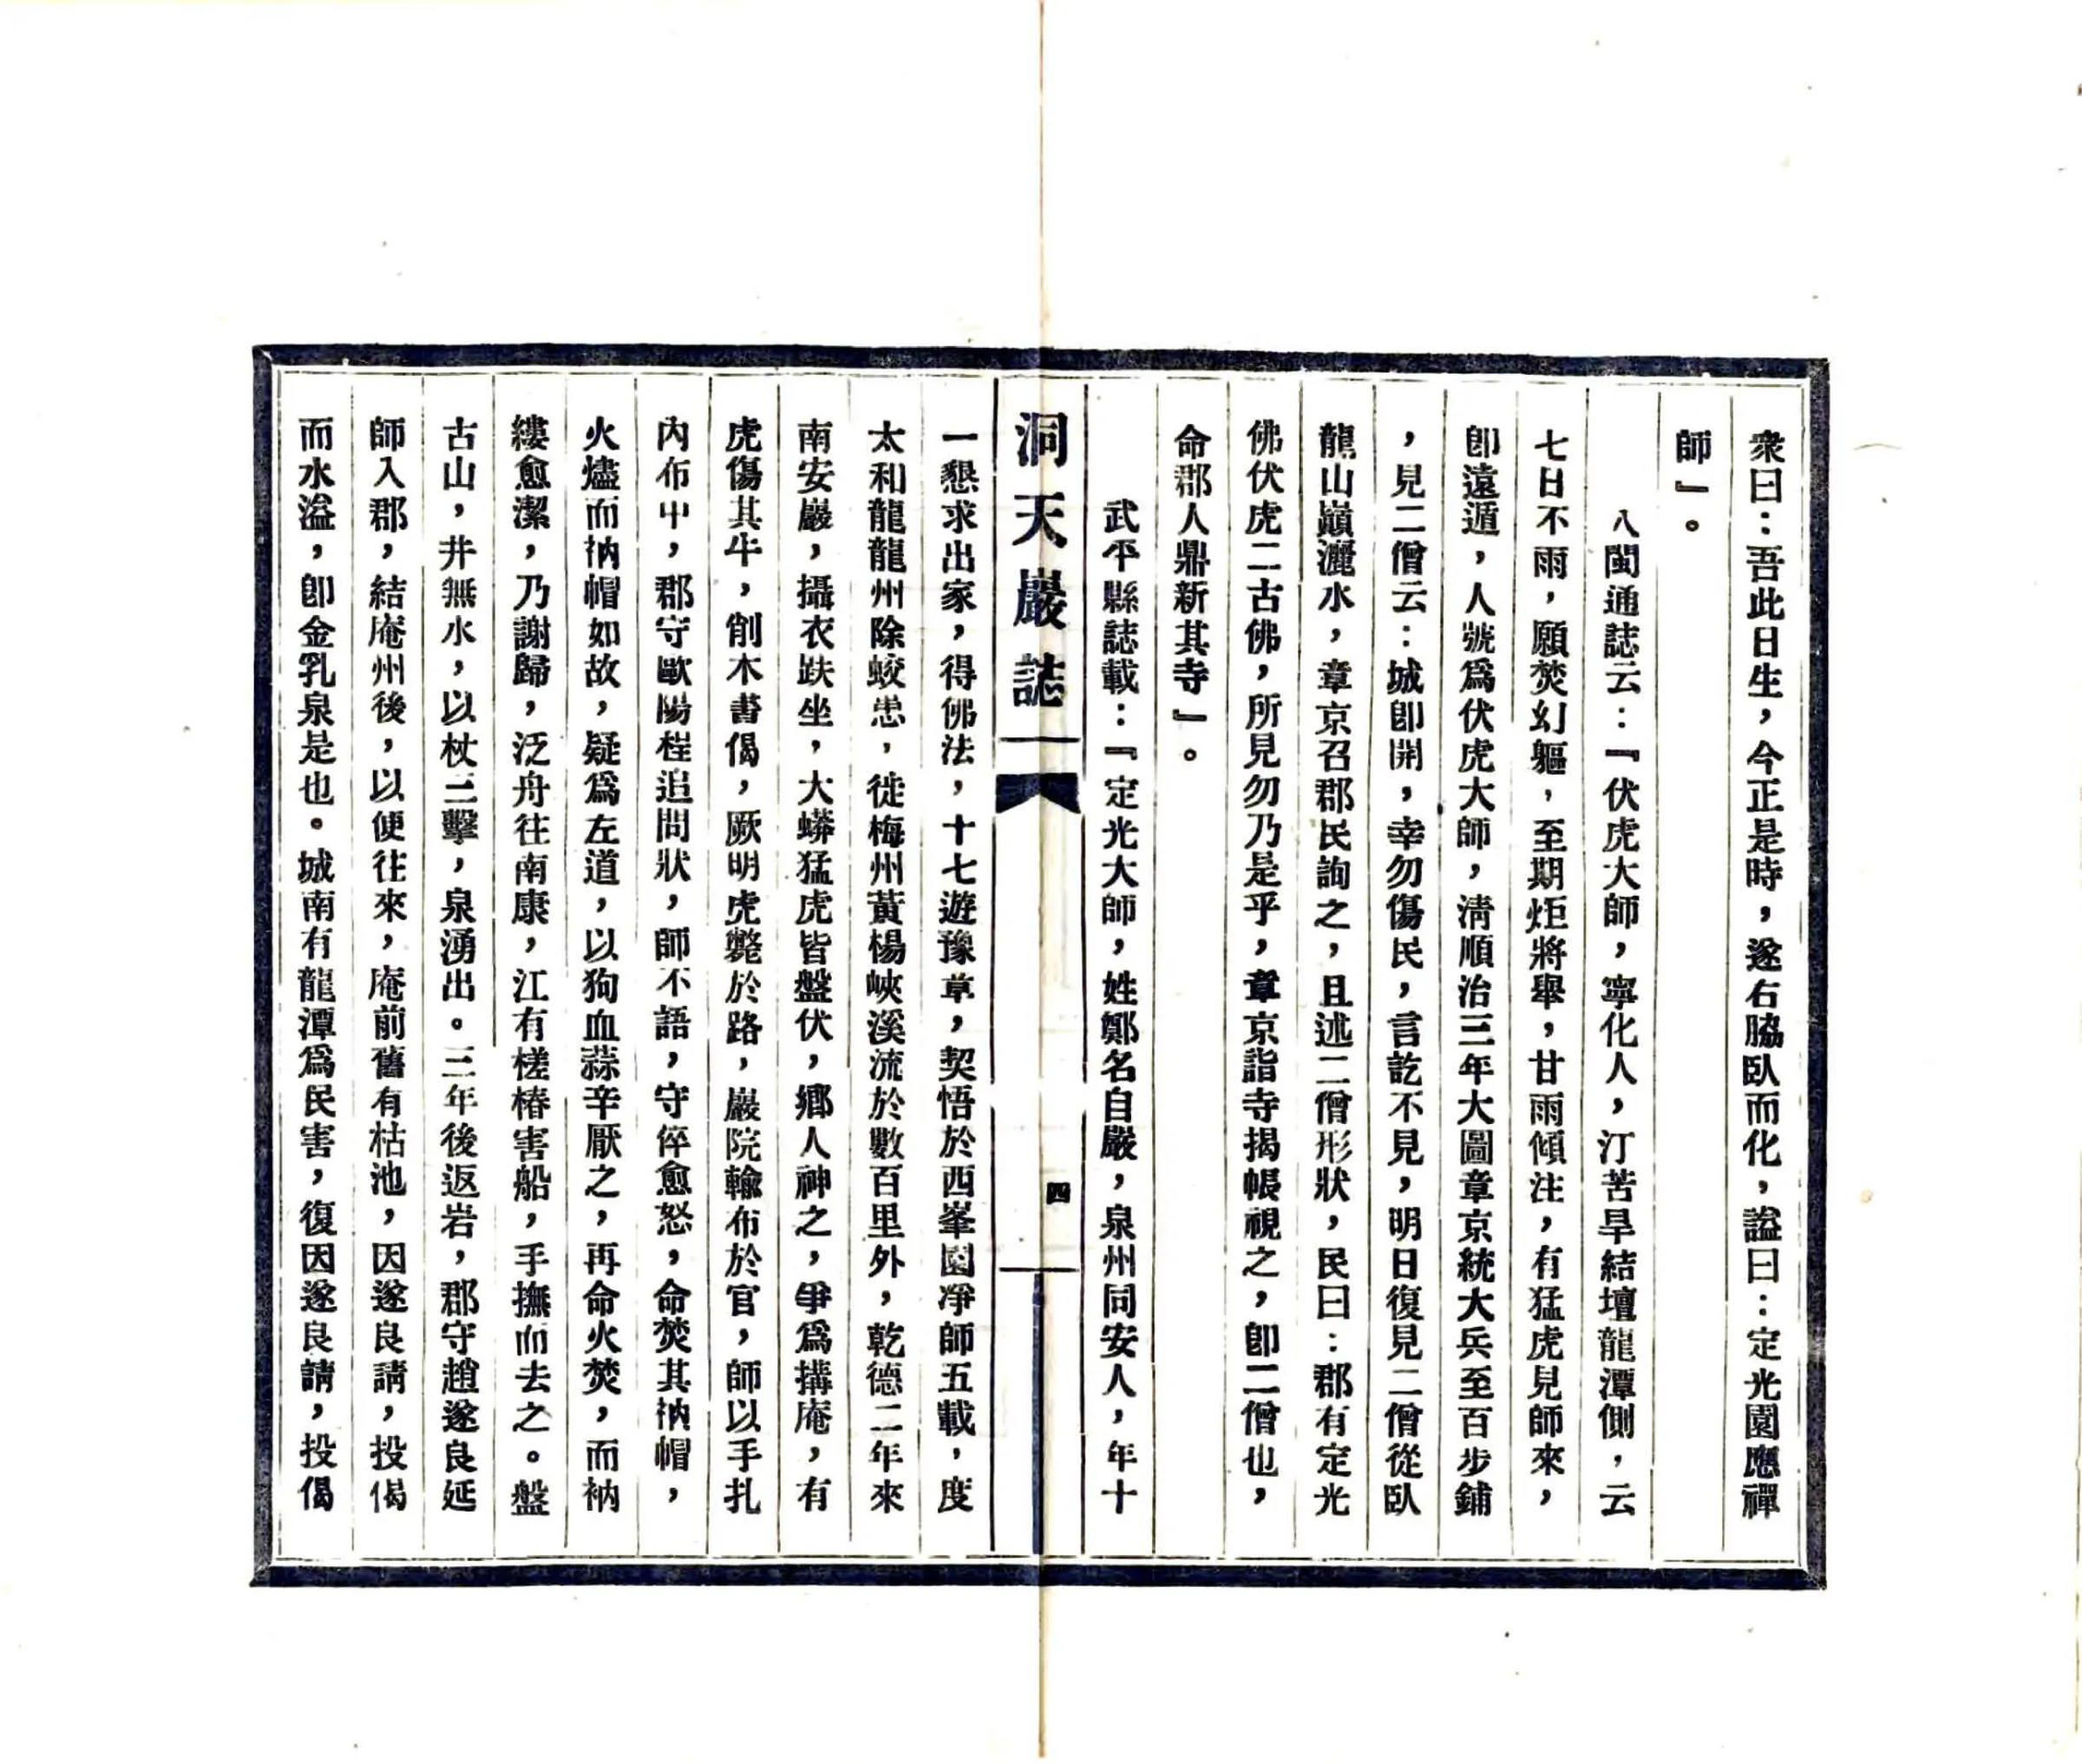 衆曰：吾此日生，今正是時，遂右脇臥而化，謚曰：定光園應禪
師』。
八閩通誌云：『伏虎大師，寧化人，汀苦旱結壇龍潭側，云
七日不雨，願焚幻軀，至期炬將舉，甘雨傾注，有猛虎見師來，
卽遠遁，人號爲伏虎大師，淸順治三年大圖章京統大兵至百步鋪
，見二僧云：城卽開，幸勿傷民，言訖不見，明日復見二僧從臥
龍山巔灑水，章京召郡民詢之，且述二僧形狀，民曰：郡有定光
佛伏虎二古佛，所見勿乃是乎，章京詣寺揭帳視之，卽二僧也，
命郡人鼎新其寺』。
武平縣誌載：『定光大師，姓鄭名自嚴，泉州同安人，年十
洞天巖誌
四
一懇求出家，得佛法，十七遊豫章，契悟於西峯園凈師五載，度
太和龍龍州除蛟患，徙梅州黃楊峽溪流於數百里外，乾德二年來
南安巖，攝衣趺坐，大蟒猛虎皆盤伏，鄉人神之，爭爲搆庵，有
虎傷其牛，削木書偈，厥明虎斃於路，巖院輸布於官，師以手扎
內布中，郡守歐陽程追問狀，師不語，守倅愈怒，命焚其衲帽，
火燼而衲帽如故，疑爲左道，以狗血蒜辛厭之，再命火焚，而衲
縷愈潔，乃謝歸，泛舟往南康，江有槎樁害船，手撫而去之。盤
古山，井無水，以杖三擊，泉湧出。三年後返岩，郡守趙遂良延
師入郡，結庵州後，以便往來，庵前舊有枯池，因遂良請，投偈
而水溢，卽金乳泉是也。城南有龍潭爲民害，復因遂良請，投偈